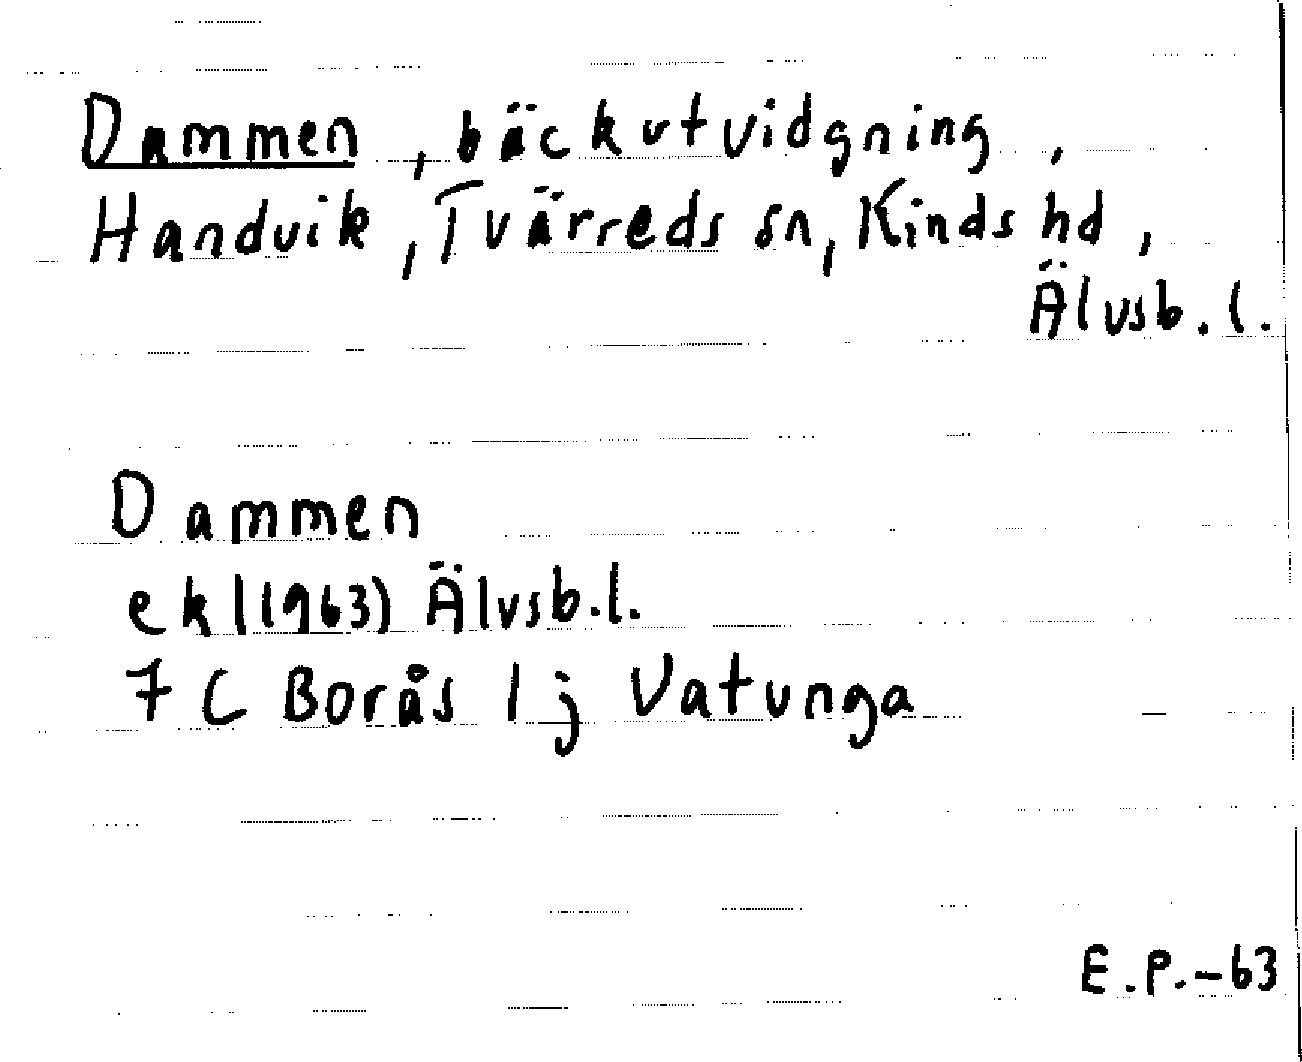 Dammen, bäckutvidgning,
Handvik, Tvärreds sn, Kinds hd,
Älvsb. l.
Dammen
ekl (1963) Älvsb. l.
7 C Borås 1 j Vatunga
E.P.-63